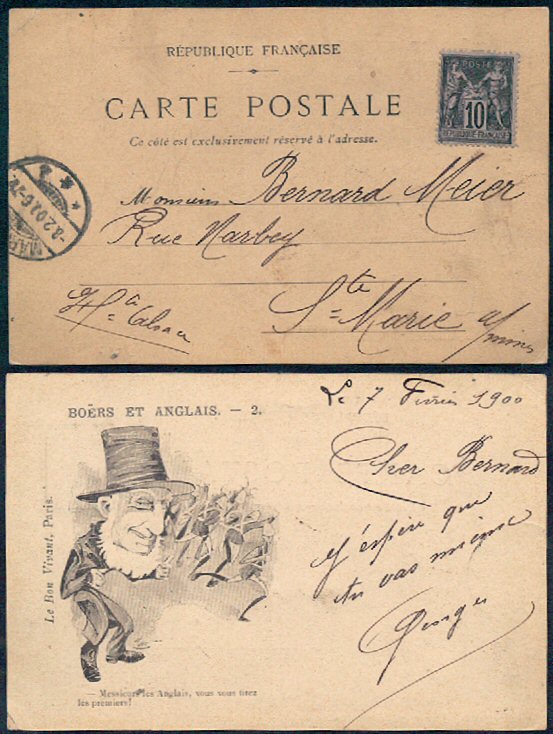 RÉPUBLIQUE FRANÇAISE
CARTE POSTALE
Ce côté est exclusivement réservé à l'adresse.
POSTE
10
RÉPUBLIQUE FRANÇAISE
Monsieur Bernard Meier
Rue Narbey
Ste Marie a/mines
Hte Alsace
MAR
-8.2.00.6-7N.
BOËRS ET ANGLAIS. — 2.
Le Bon Vivant, Paris.
— Messieurs les Anglais, vous vous tirez
les premiers!
Le 7 Février 1900
Cher Bernard
J'espère que
tu vas mieux
Georges